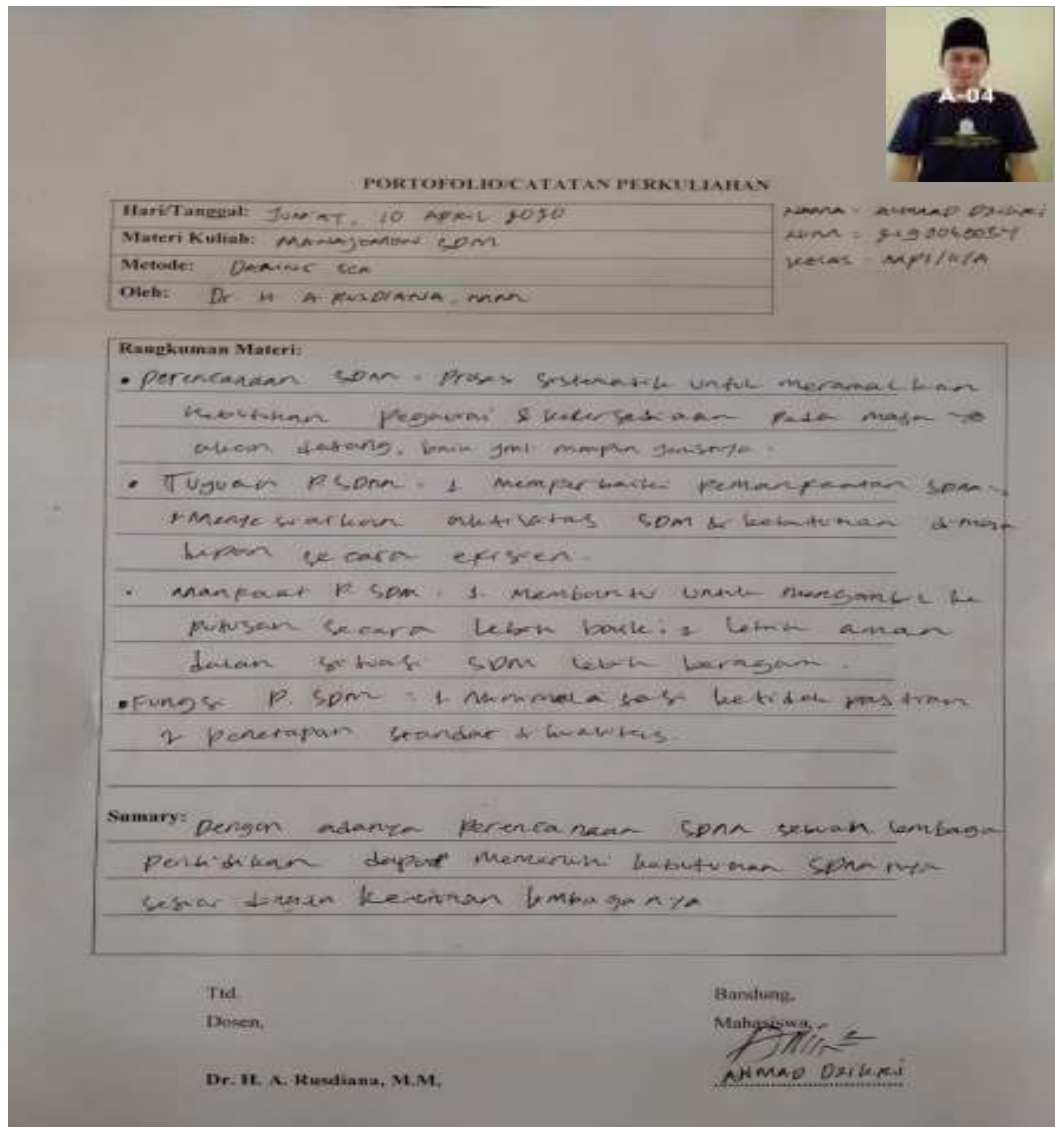 A-04
PORTOFOLIO/CATATAN PERKULIAHAN
Hari/Tanggal: JUM'AT, 10 APRIL 2020
Materi Kuliah: MANAJEMEN SDM
Metode: DARING
Oleh: Dr H A RUSDIANA, MM
NAMA : AHMAD DZIKRI
NIM :
KELAS : MPI/II/A
Rangkuman Materi:
• perencanaan SDM : Proses sistematik untuk meramalkan
kebutuhan pegawai & ketersediaan pada masa
akan datang, baik jml maupun jenisnya.
• Tujuan P SDM : 1 memperbaiki pemanfaatan SDM
2 Menyesuaikan aktivitas SDM & kebutuhan di masa
depan secara efisien.
• Manfaat P SDM : 1. Membantu untuk mengambil ke
putusan secara lebih baik; 2 lebih aman
dalam situasi SDM lebih beragam.
• Fungsi P. SDM : 1 ketidak pastian
2 penetapan standar & kualitas.
Sumary: Dengan adanya perencanaan SDM sebuah lembaga
pendidikan dapat memenuhi kebutuhan SDM nya
sesuai dengan lembaganya
Ttd.
Dosen,
Dr. H. A. Rusdiana, M.M,
Bandung,
Mahasiswa,
AHMAD DZIKRI